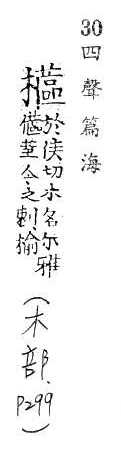 30 四聲篇海
櫙
於侯切木名尔雅
櫙荎今之刺榆
(木部. P299)